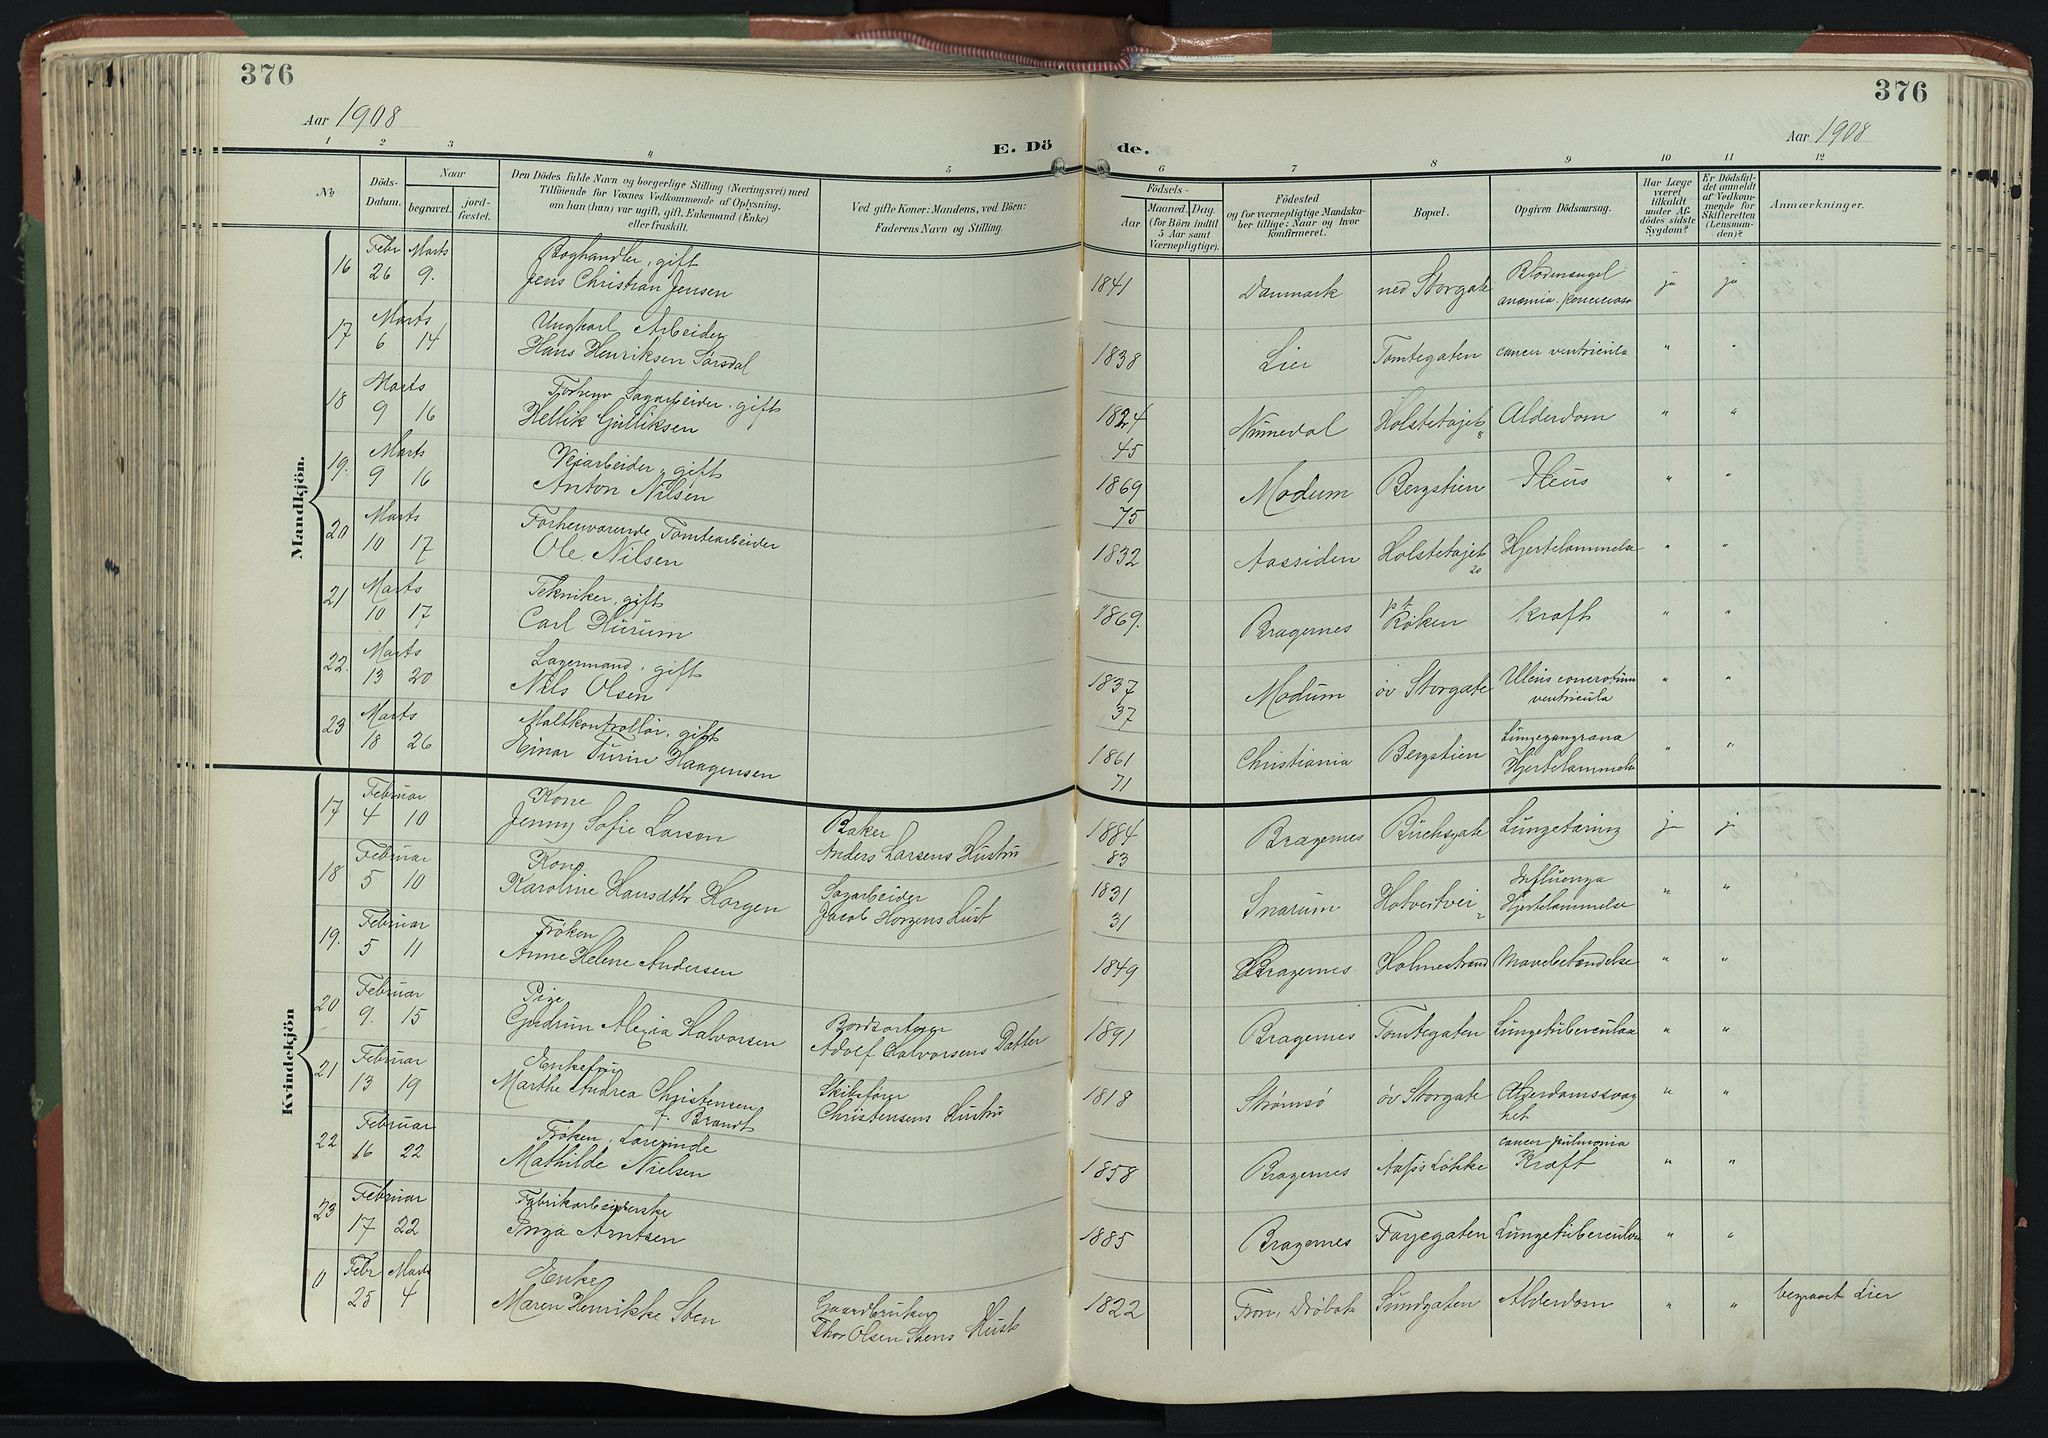 376
376
Aar 1908
Aar 1908
E. Dö de.
1 2 3 4 5 6 7 8 9 10 11 12
No
Döds-Datum.
Naar
begravet.
jord-fæstet.
Den Dödes fulde Navn og borgerlige Stilling (Næringsvei) med
Tilföiende for Voxnes Vedkommende af Oplysning,
om han (hun) var ugift, gift, Enkemand (Enke)
eller fraskilt.
Ved gifte Koner: Mandens, ved Börn:
Faderens Navn og Stilling.
Födsels-
Aar
Maaned. Dag.
(for Börn indtil
5 Aar samt
Værnepligtige).
Födested
og for værnepligtige Mandska-
ber tillige: Naar og hvor
konfirmeret.
Bopæl.
Opgiven Dödsaarsag.
Har Læge
været
tilkaldt
under Af-
dödes sidste
Sygdom?
Er Dödsfal-
det anmeldt
af Vedkom-
mende for
Skifteretten
(Lensman-
den)?
Anmærkninger.
Mandkjön.
16 Febr 26 Marts 9. Boghandler, gift
Jens Christian Jensen 1841 Danmark ned Storgate Blodmangel ja ja
17 Marts 6 14 Ungkarl Arbeider
Hans Henriksen Sørsdal 1838 Lier Tomtegaten cancer ventricula " "
18 Marts 9 16 Forhenv Sagarbeider, gift
Hellik Gulliksen 1824 45 Numedal Holstetajet 8 Alderdom " "
19. Marts 9 16 Veiarbeider, gift
Anton Nilsen 1869 75 Modum Bergstien Ileus " "
20 Marts 10 17 Forhenværende Tomtearbeider
Ole Nilsen 1832 Aassiden Holstetajet 20 Hjertelammelse " "
21 Marts 10 17 Tekniker, gift
Carl Hurum 1869. Bragernes pt Røken Kræft " "
22. Marts 13 20 Lagermand, gift
Nils Olsen 1837 37 Modum øv Storgate Ulcus ventricula " "
23 Marts 18 26 Maltkontrollør, gift
Einar Turin Haagensen 1861 71 Christiania Bergstien Lungegangræna
Hjertelammelse " "
Kvindekjön
17 Februar 4 10 Kone
Jenny Sofie Larsen Baker
Anders Larsens Hustru 1884 83 Bragernes Buchsgate Lungetæring ja ja
18 Februar 5 10 Kone
Karoline Hansdtr Horgen Sagarbeider
Jacob Horgens Hust 1831 31 Snarum Hotvetvei 2 Influenza
Hjertelammelse " "
19. Februar 5 11 Frøken
Anne Helene Andersen 1849 Bragernes Holmestrand Mavebetændelse " "
20 Februar 9. 15 Pige
Gudrun Alexia Halvorsen Bordsorterer
Adolf Halvorsens Datter 1891 Bragernes Tomtegaten Lungetuberculose " "
21 Februar 13 19 Enkefru
Marthe Andrea Christensen
f. Brandt Skibsfører
Christensens Hustru 1818 Strømsø øv Storgate Alderdomssvag
het " "
22 Februar 16 22 Frøken, Lærerinde
Mathilde Nielsen 1858 Bragernes Aass Løkke cancer pulmonia
Kræft " "
23 Februar 17 22 Fabrikarbeiderske
Inga Arntsen 1885 Bragernes Farjegaten Lungetuberculose " "
0 Febr 25 Marts 4 Enke
Maren Henrikke Sten Gaardbruker
Thor Olsen Stens Hust 1822 Fron, Drøbak Sundgaten Alderdom " " begravet Lier